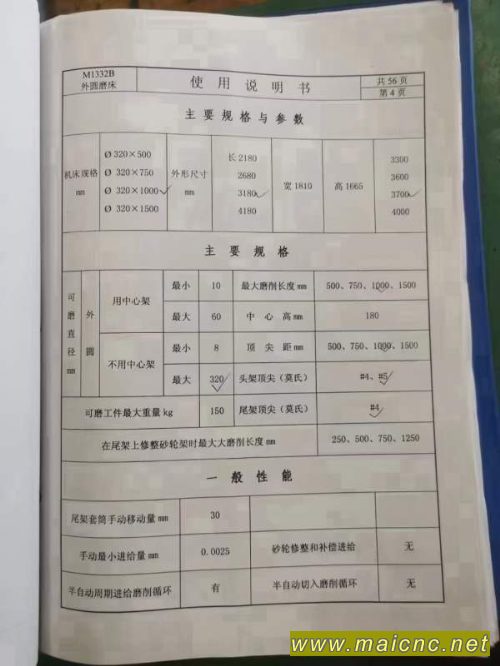 M1332B
外圆磨床
使用说明书
共 56 页
第 4 页
主要规格与参数
机床规格
mm
Ø 320×500
Ø 320×750
Ø 320×1000
Ø 320×1500
外形尺寸
mm
长 2180
2680
3180
4180
宽 1810
高 1665
3300
3600
3700
4000
主要规格
可磨直径mm
外圆
用中心架
最小
10
最大磨削长度mm
500、750、1000、1500
最大
60
中心高mm
180
不用中心架
最小
8
顶尖距mm
500、750、1000、1500
最大
320
头架顶尖(莫氏)
#4、#5
可磨工件最大重量kg
150
尾架顶尖(莫氏)
#4
在尾架上修整砂轮架时最大大磨削长度mm
250、500、750、1250
一般性能
尾架套筒手动移动量mm
30
手动最小进给量mm
0.0025
砂轮修整和补偿进给
无
半自动周期进给磨削循环
有
半自动切入磨削循环
无
www.maicnc.net